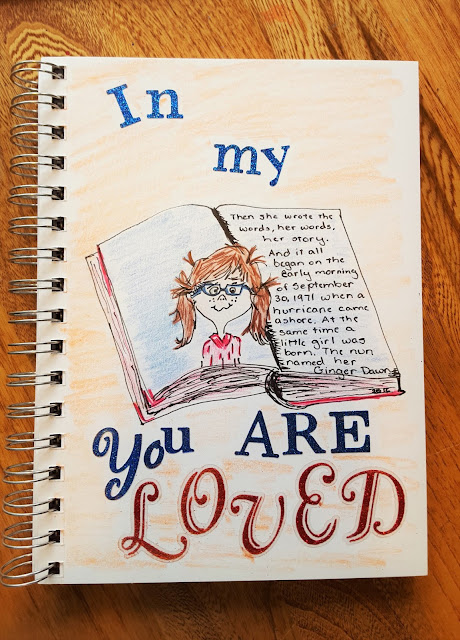 In
my
Then she wrote the
words, her words,
her story.
And it all
began on the
early morning
of September
30, 1971 when a
hurricane came
ashore. At the
same time a
little girl was
born. The nun
named her
Ginger Dawn
You ARE
LOVED